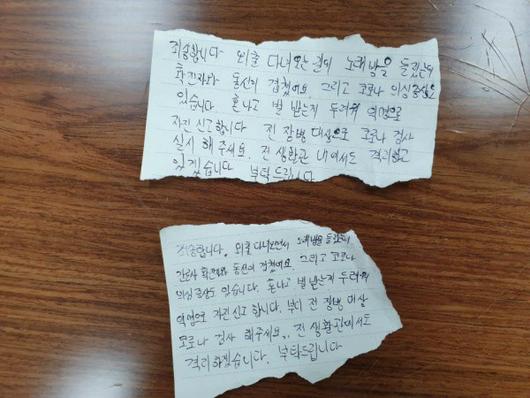 죄송합니다 외출 다녀오는 길에 노래방을 들렸는데
확진자와 동선이 겹쳤어요 그리고 코로나 의심증상도
있습니다 혼나고 벌 받는지 두려워 익명으로
자진 신고합니다 전 장병 대상으로 코로나 검사
실시 해 주세요. 전 생활관 내에서도 격리하고
있겠습니다 부탁드립니다
죄송합니다. 외출 다녀오면서 노래방을 들렸는데
확진자와 동선이 겹쳤어요. 그리고 코로나
의심증상도 있습니다. 혼나고 벌 받는지 두려워
익명으로 자진 신고 합니다. 부디 전 장병 대상
코로나 검사 해주세요.. 전 생활관에서도
격리하겠습니다. 부탁드립니다